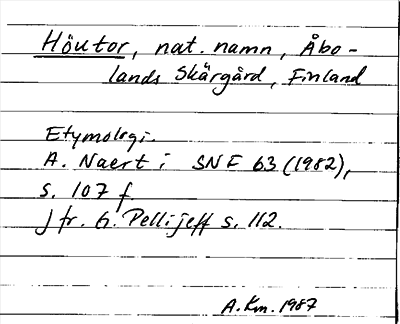 Höutor, nat. namn, Åbo-
lands Skärgård, Finland
Etymologi.
A. Naert i SNF 63 (1982),
s. 107 f.
jfr. G. Pellijeff s. 112.
A.Km. 1987